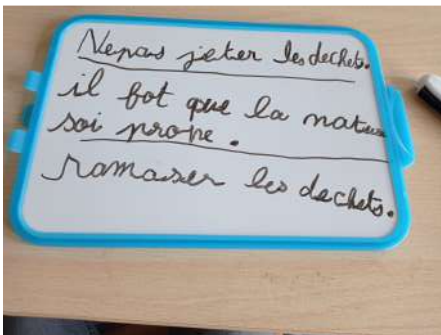 Nepas jeter les dechets.
il fot que la nature
soi prope.
ramaser les dechets.